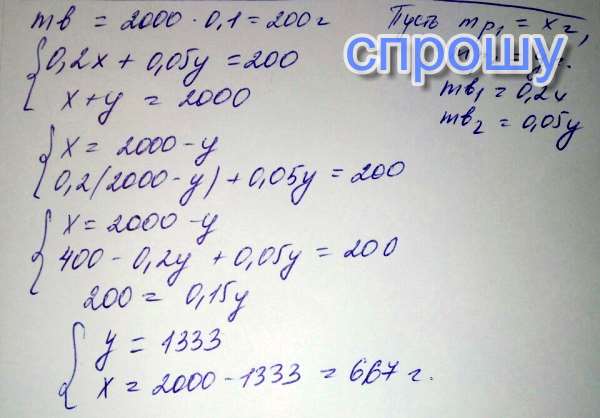 mв = 2000 · 0,1 = 200 г
Пусть mр₁ = x г,
0,2x + 0,05y = 200
x + y = 2000
спрошу
mв₁ = 0,2x
mв₂ = 0,05y
x = 2000 - y
0,2(2000 - y) + 0,05y = 200
x = 2000 - y
400 - 0,2y + 0,05y = 200
200 = 0,15y
y = 1333
x = 2000 - 1333 = 667 г.